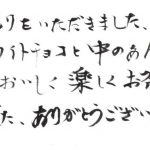 りをいただきました、
ワイトチョコと中のあん
おいしく楽しくお
た、ありがとうござい